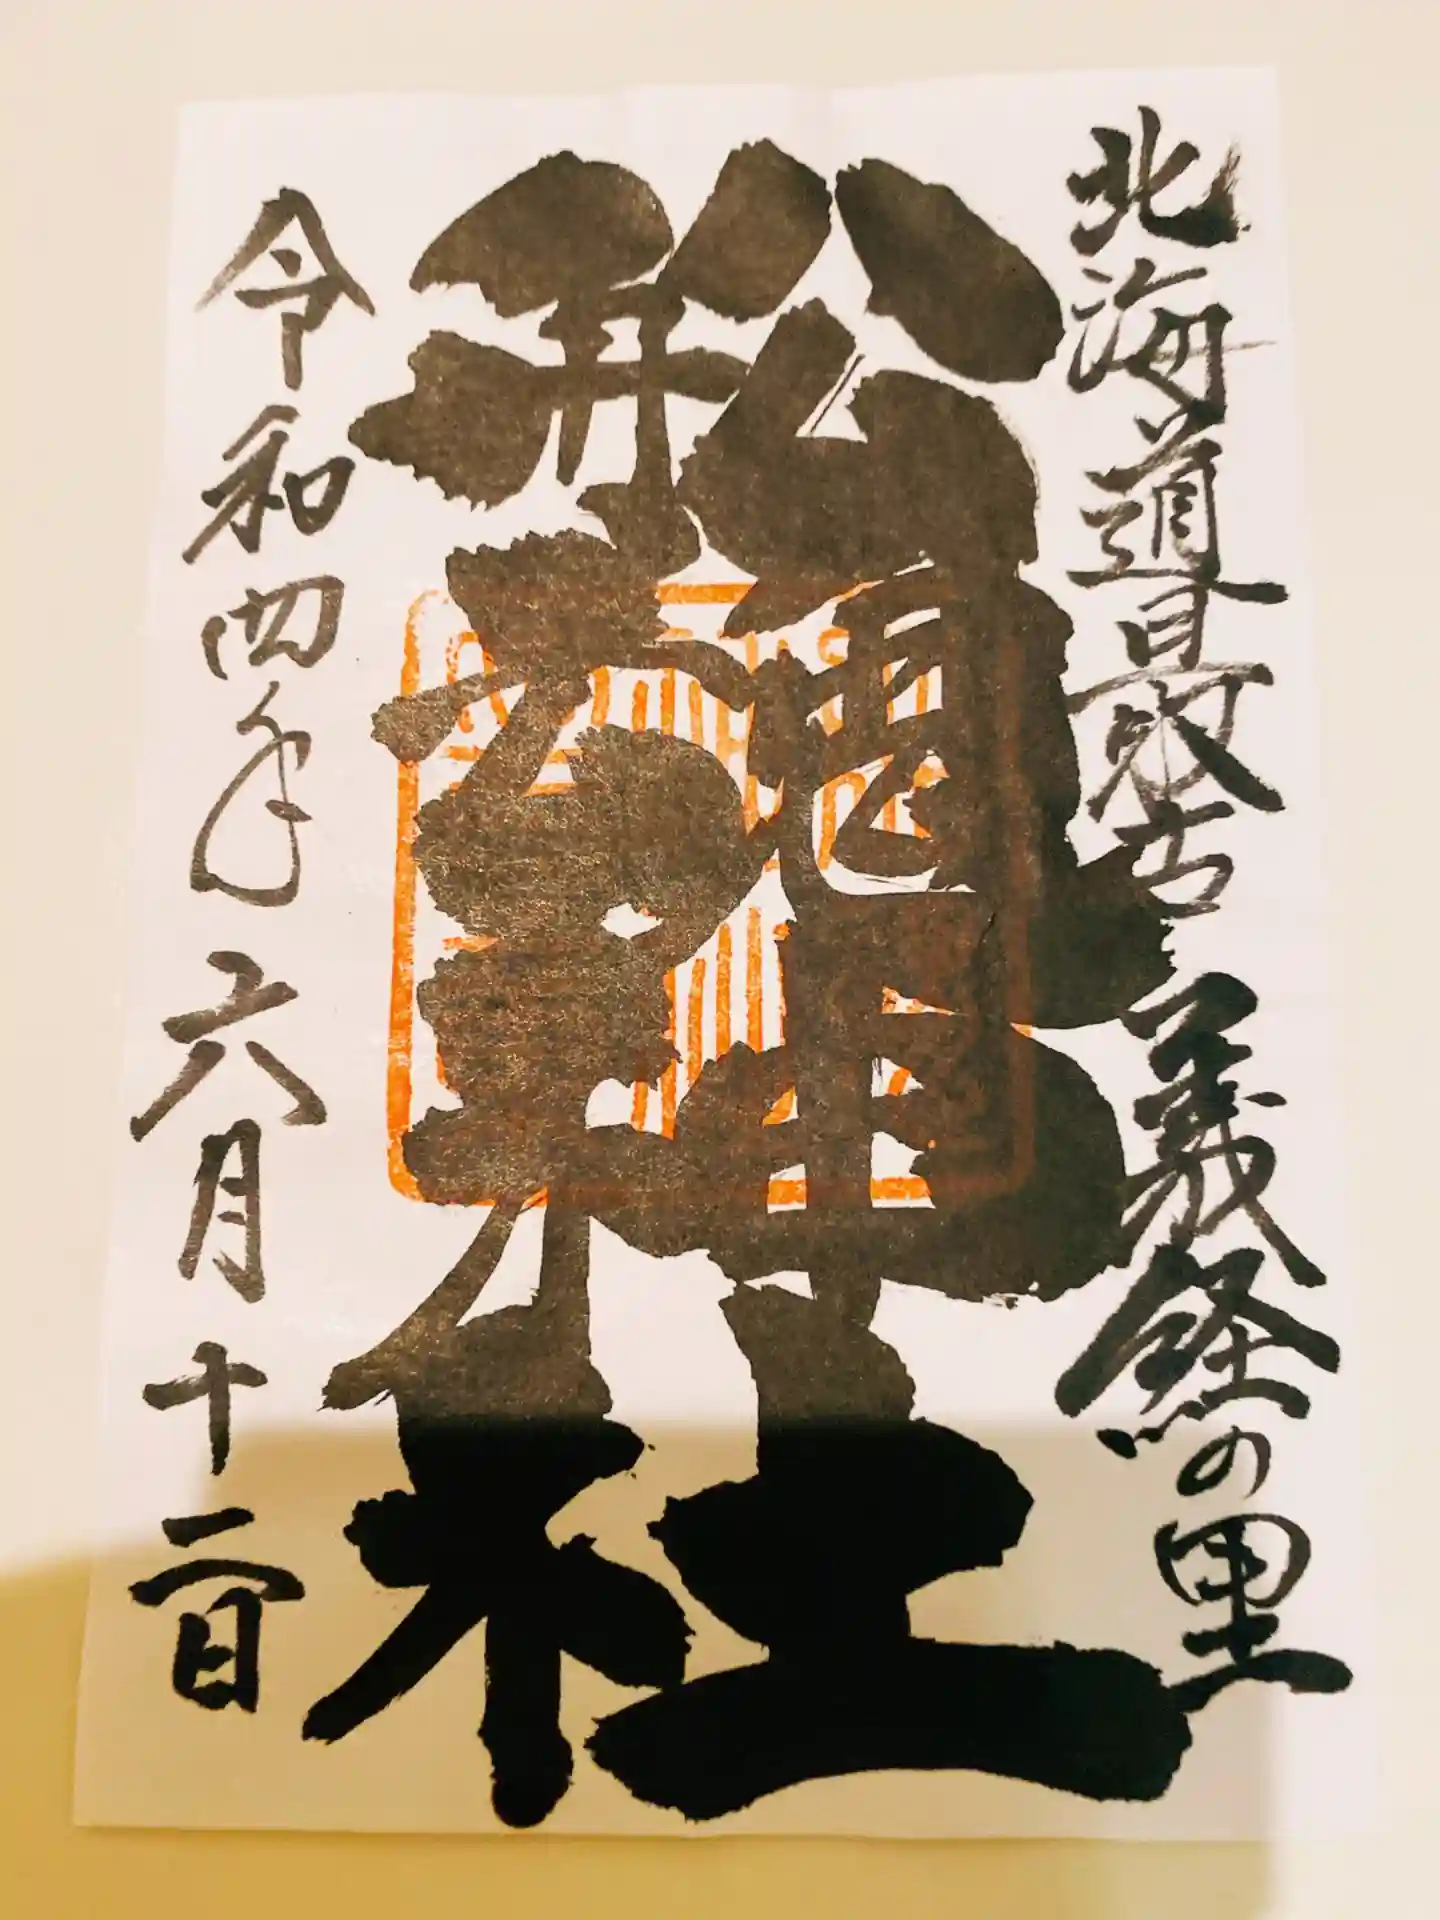 北海道最古 義経の里
船魂神社
令和四年六月十二日